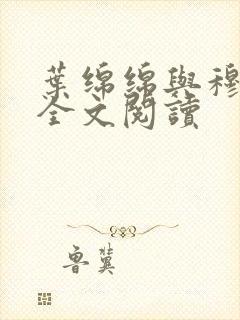 葉綿綿與穆
全文閱讀
魯冀